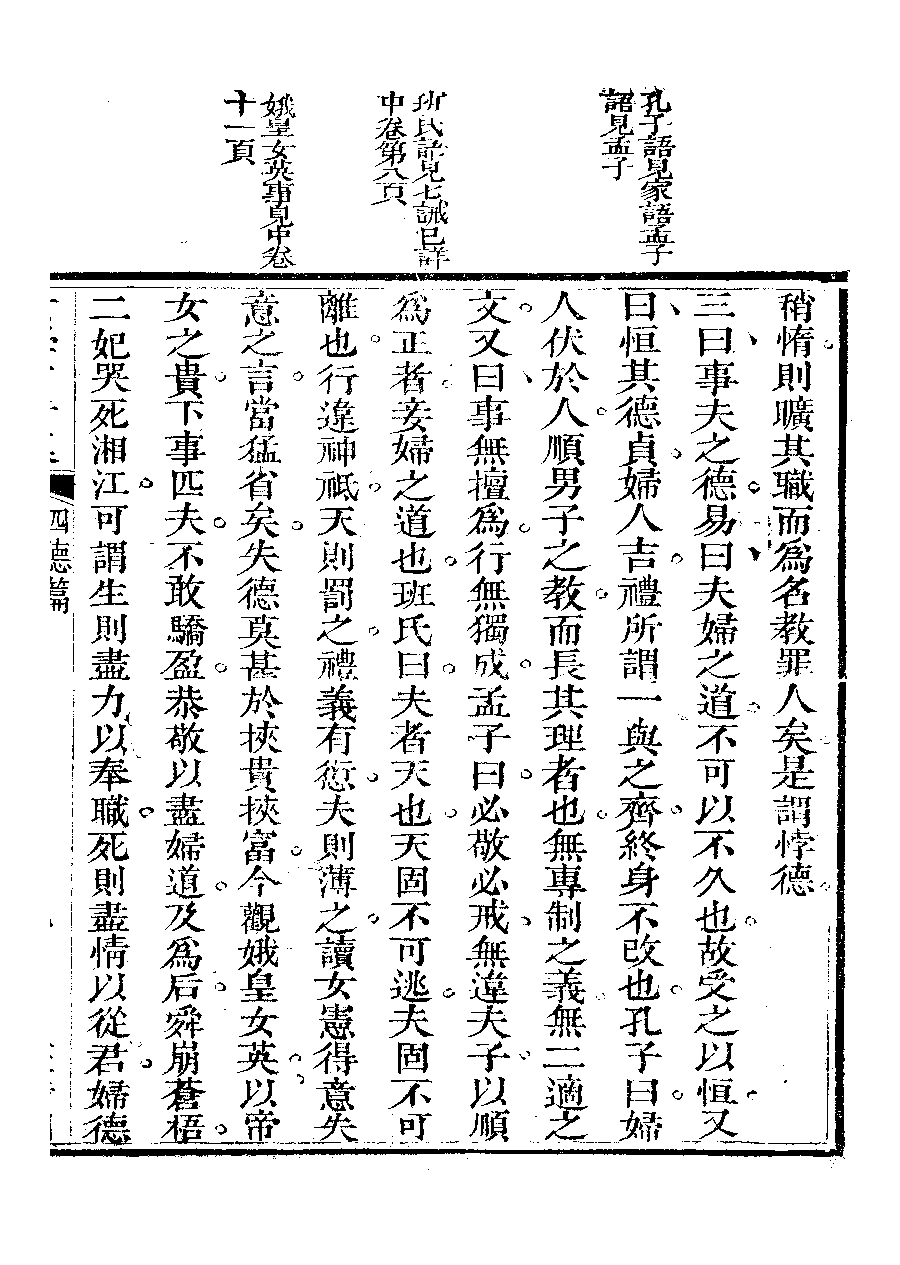 孔子語見家語孟子
語見孟子
班氏語見七誡已詳
中卷第八頁
娥皇女英事見中卷
十一頁
稍惰則曠其職而為名教罪人矣是謂悖德
三曰事夫之德易曰夫婦之道不可以不久也故受之以恒又
曰恒其德貞婦人吉禮所謂一與之齊終身不改也孔子曰婦
人伏於人順男子之教而長其理者也無專制之義無二適之
文又曰事無擅為行無獨成孟子曰必敬必戒無違夫子以順
為正者妾婦之道也班氏曰夫者天也天固不可逃夫固不可
離也行違神祇天則罰之禮義有愆夫則薄之讀女憲得意失
意之言當猛省矣失德莫甚於挾貴挾富今觀娥皇女英以帝
女之貴下事匹夫不敢驕盈恭敬以盡婦道及為后舜崩蒼梧
二妃哭死湘江可謂生則盡力以奉職死則盡情以從君婦德
四德篇